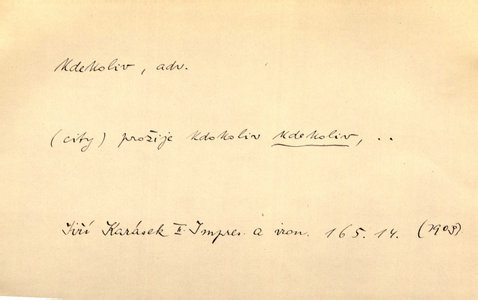 Kdekoliv, adv.
(city) prožije kdokoliv kdekoliv, ..
Jiří Karásek II Impres. a iron. 165.14. (1903)